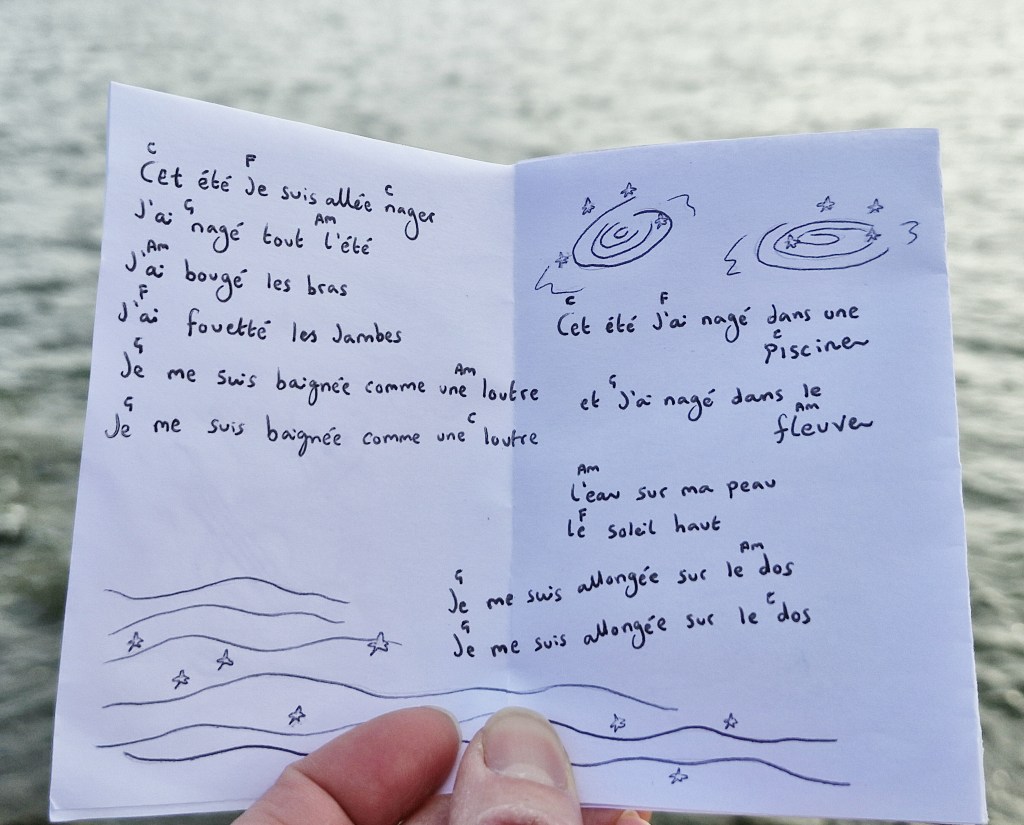 C F C
Cet été Je suis allée nager
G Am
J'ai nagé tout l'été
Am
J'ai bougé les bras
F
J'ai fouetté les Jambes
G Am
Je me suis baignée comme une loutre
G C
Je me suis baignée comme une loutre
C F
Cet été J'ai nagé dans une
C
piscine
G
et J'ai nagé dans le
Am
fleuve
Am
l'eau sur ma peau
F
le soleil haut
G Am
Je me suis allongée sur le dos
G C
Je me suis allongée sur le dos